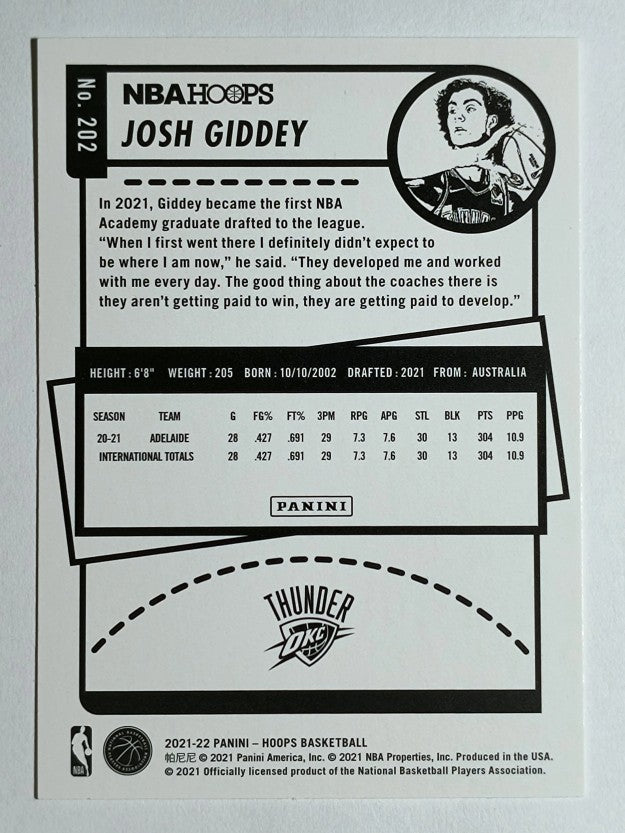 No. 202
NBA HOOPS
JOSH GIDDEY
In 2021, Giddey became the first NBA
Academy graduate drafted to the league.
“When I first went there I definitely didn’t expect to
be where I am now,” he said. “They developed me and worked
with me every day. The good thing about the coaches there is
they aren’t getting paid to win, they are getting paid to develop.”
HEIGHT: 6'8" WEIGHT: 205 BORN: 10/10/2002 DRAFTED: 2021 FROM: AUSTRALIA
SEASON TEAM G FG% FT% 3PM RPG APG STL BLK PTS PPG
20-21 ADELAIDE 28 .427 .691 29 7.3 7.6 30 13 304 10.9
INTERNATIONAL TOTALS 28 .427 .691 29 7.3 7.6 30 13 304 10.9
PANINI
THUNDER
OKC
NBA
2021-22 PANINI – HOOPS BASKETBALL
帕尼尼 © 2021 Panini America, Inc. © 2021 NBA Properties, Inc. Produced in the USA.
© 2021 Officially licensed product of the National Basketball Players Association.